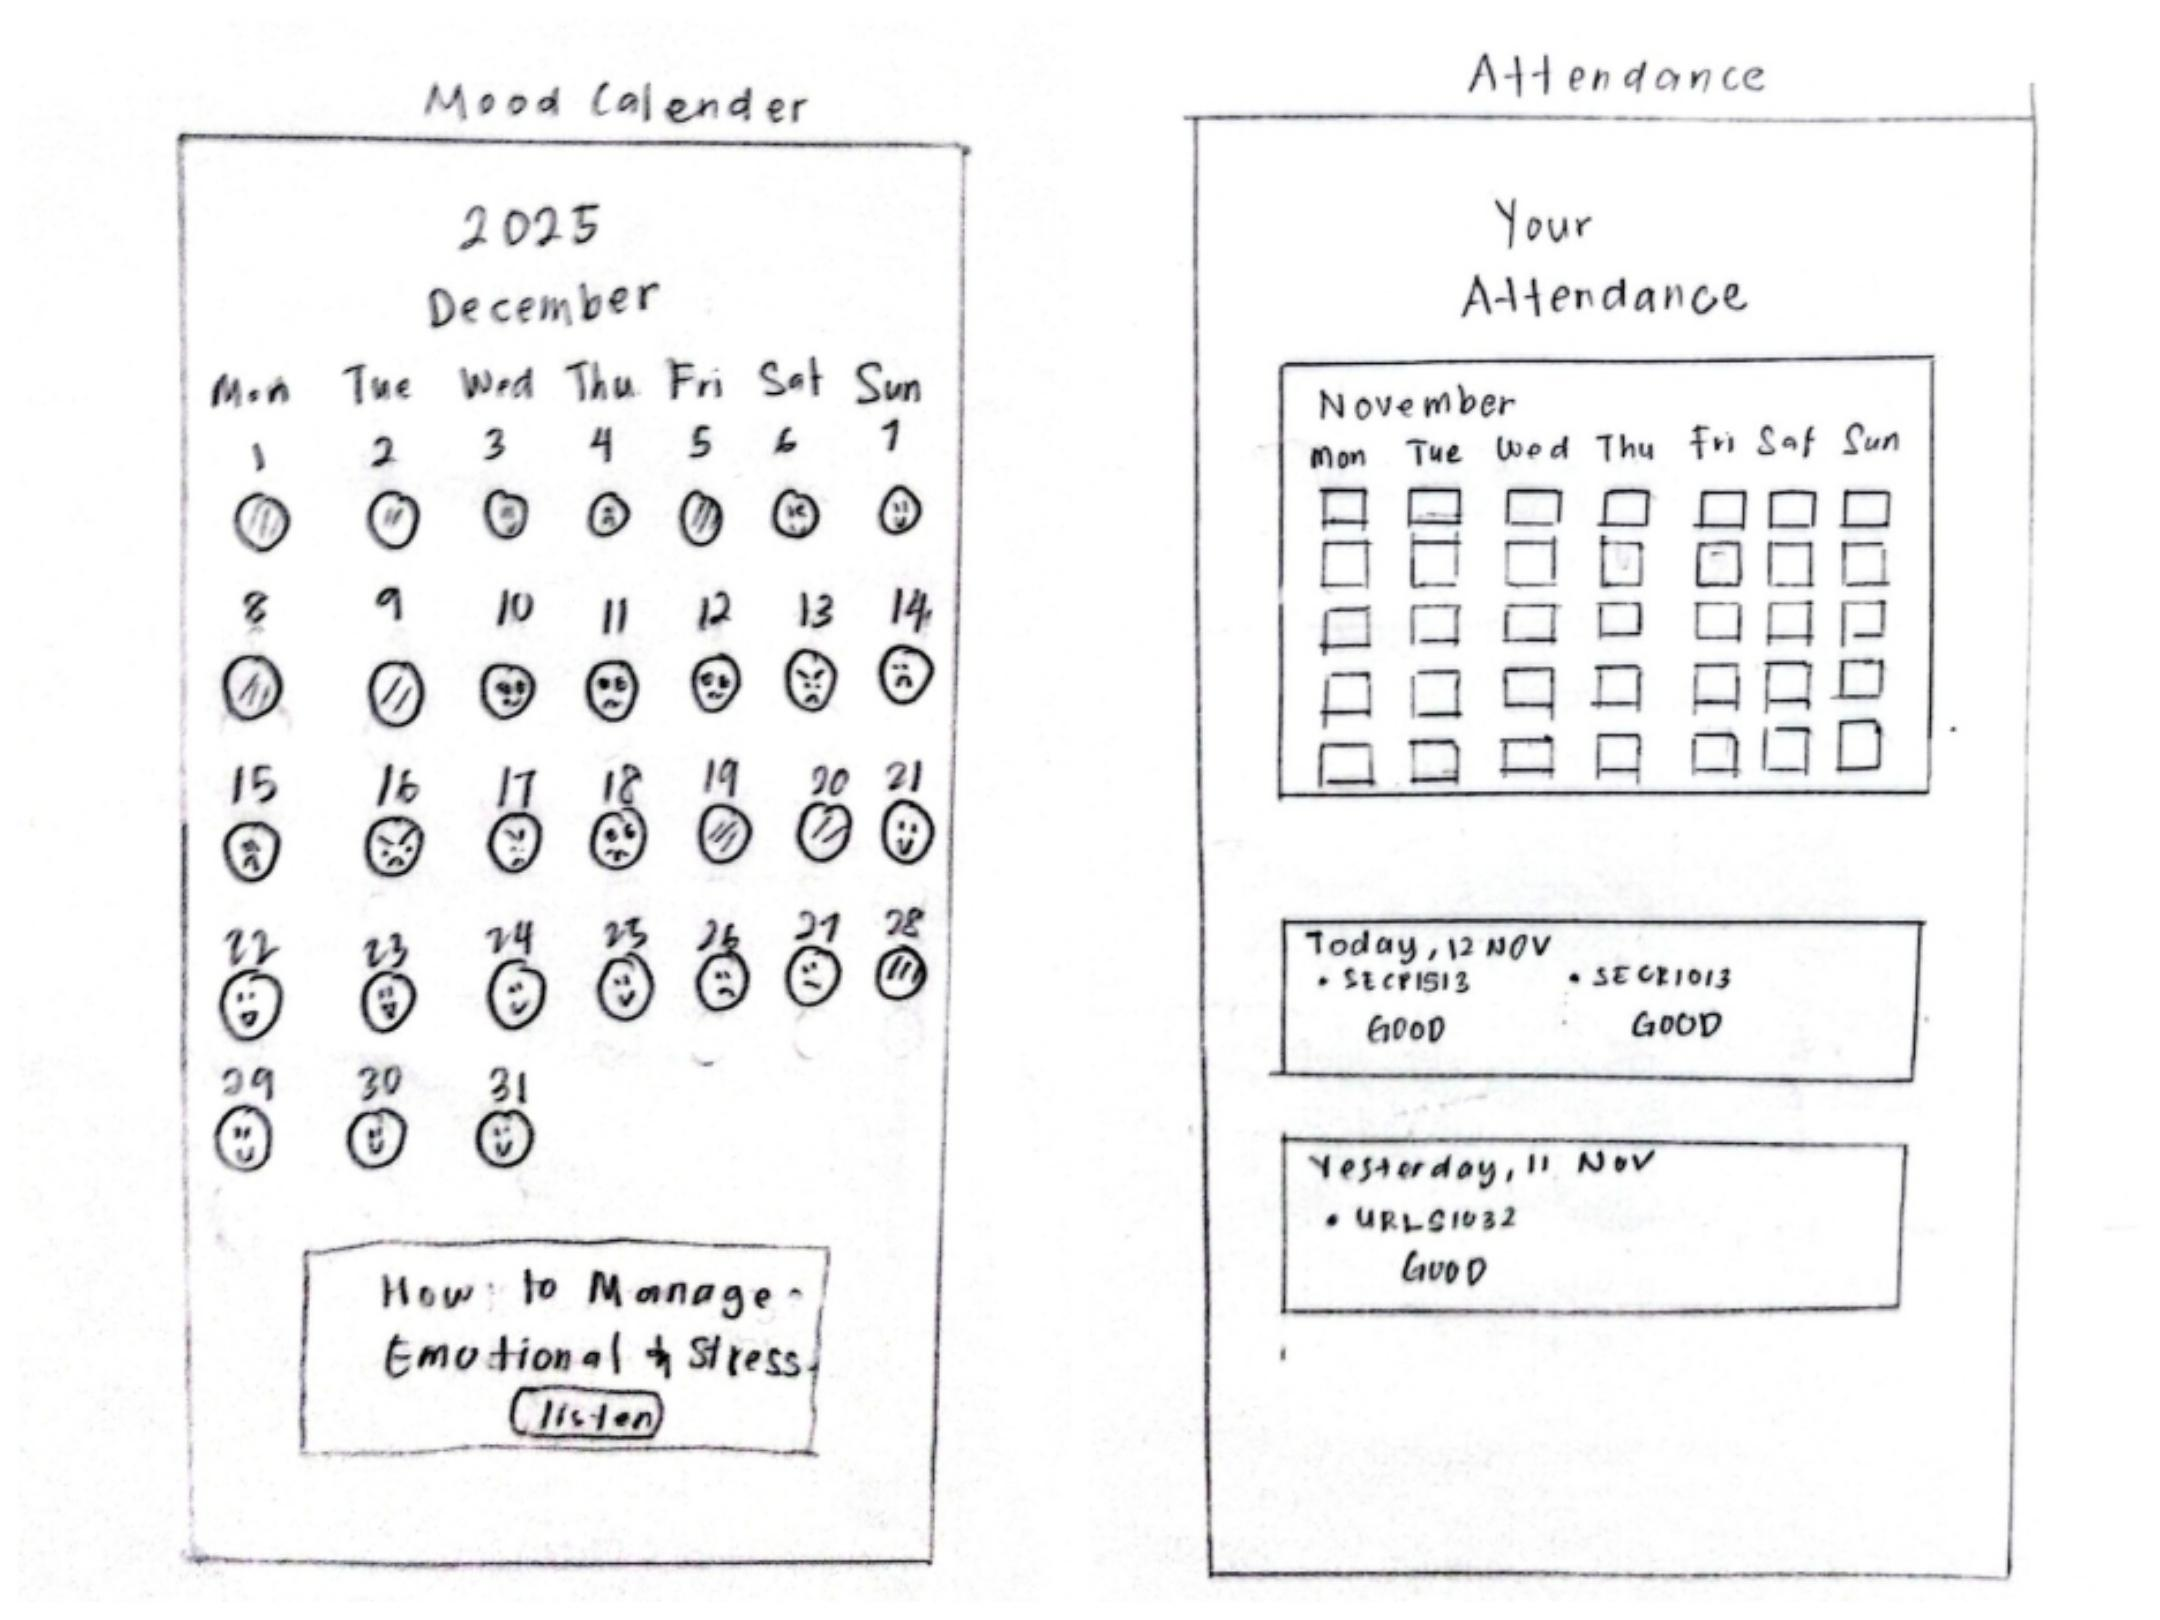 Mood Calender
2025
December
Mon Tue Wed Thu Fri Sat Sun
1 2 3 4 5 6 7
8 9 10 11 12 13 14
15 16 17 18 19 20 21
22 23 24 25 26 27 28
29 30 31
How to Manage
Emotional & Stress
listen
Attendance
Your
Attendance
November
Mon Tue Wed Thu Fri Sat Sun
Today, 12 NOV
• SECP1513 • SECR1013
GOOD GOOD
Yesterday, 11 Nov
• URLS1032
GOOD